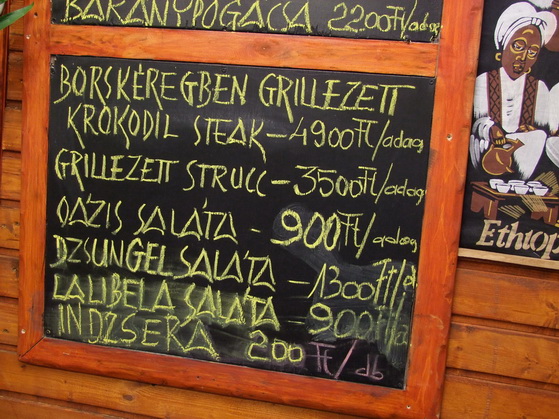 BÁRÁNYPOGÁCSA 2200Ft/adag
BORSKÉREGBEN GRILLEZETT
KROKODIL STEAK-4900Ft/adag
GRILLEZETT STRUCC-3500Ft/adag
OÁZIS SALÁTA - 900Ft/adag
DZSUNGEL SALÁTA -1300Ft/
LALIBELA SALÁTA - 900Ft/a
INDZSERA 200 Ft/db
Ethiop